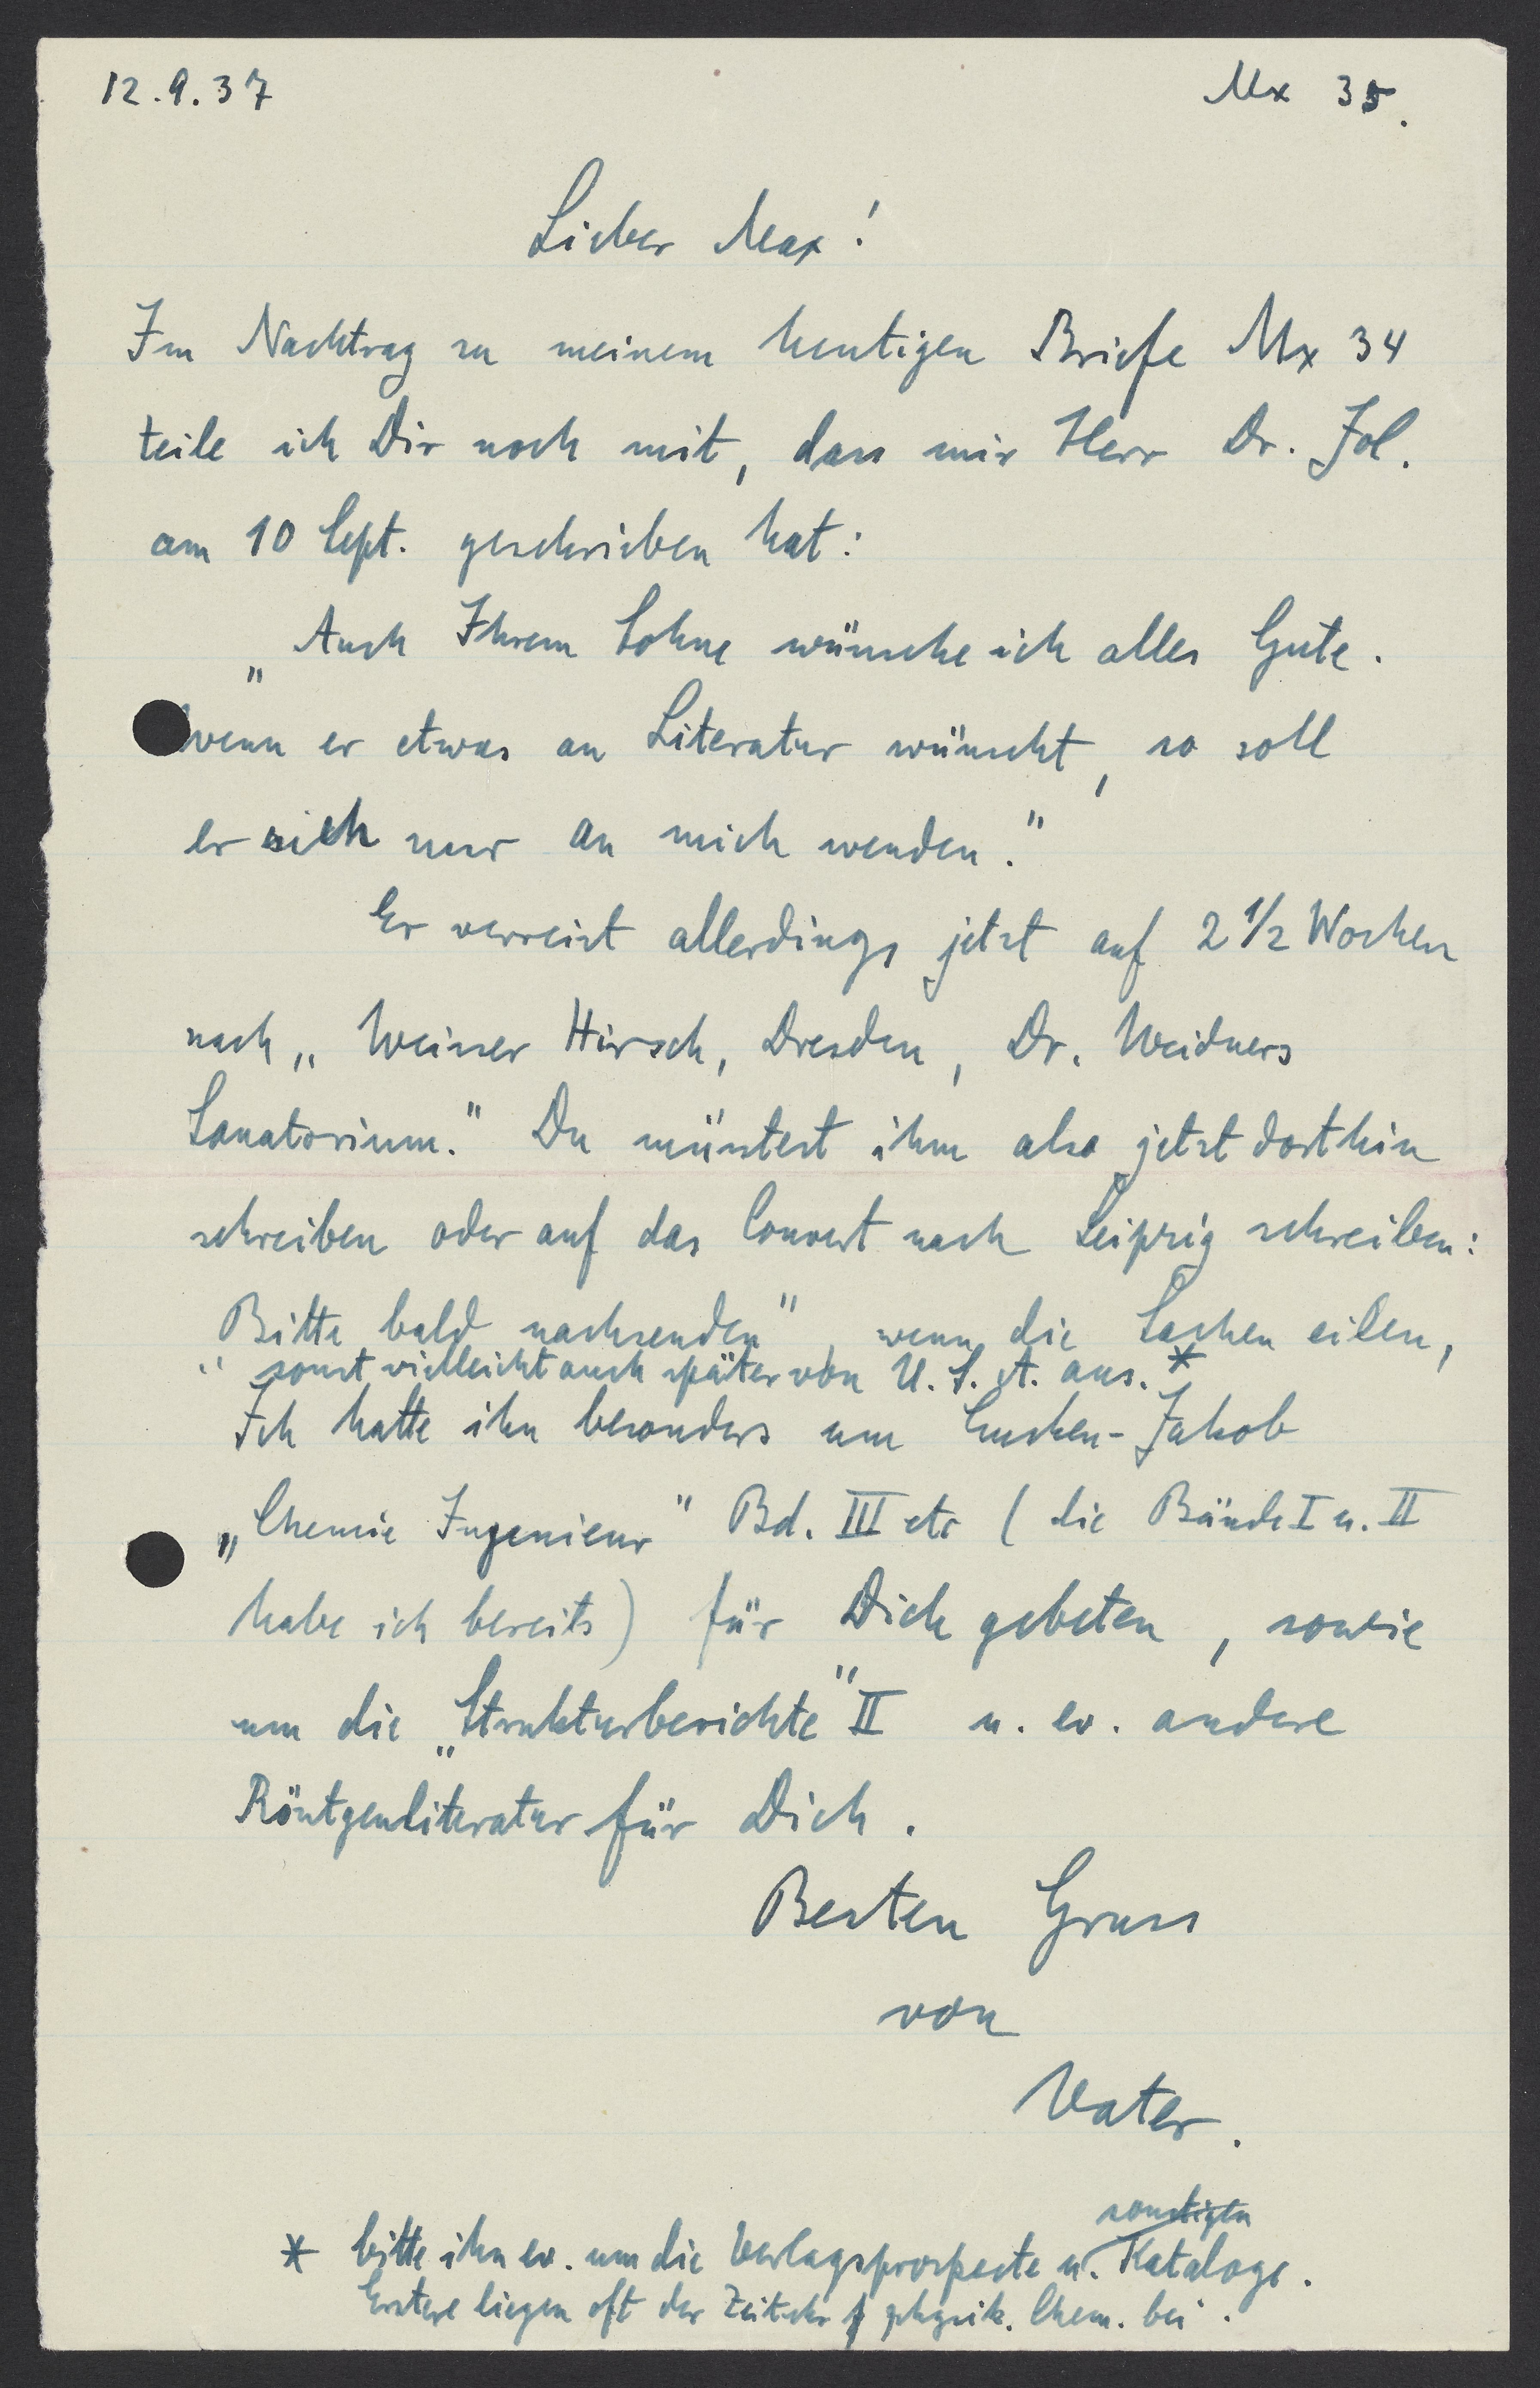 12.9.37
Mx 35.
Lieber Max!
Im Nachtrag zu meinem heutigen Briefe Mx 34
teile ich Dir noch mit, dass mir Herr Dr. Jol.
am 10 Sept. geschrieben hat:
„Auch Ihrem Sohne wünsche ich alles Gute.
Wenn er etwas an Literatur wünscht, so soll
er sich nur an mich wenden."
Er verreist allerdings jetzt auf 2 1/2 Wochen
nach „Weisser Hirsch, Dresden, Dr. Weidners
Sanatorium." Du müsstest ihm also jetzt dorthin
schreiben oder auf das Couvert nach Leipzig schreiben:
„Bitte bald nachsenden", wenn die Sachen eilen,
sonst vielleicht auch später von U.S.A. aus.*
Ich hatte ihn besonders um Eucken-Jakob
„Chemie Ingenieur" Bd. III etc (die Bände I u. II
habe ich bereits) für Dich gebeten, sowie
um die „Strukturberichte" II u. ev. andere
Röntgenliteratur für Dich.
Besten Gruss
von
Vater.
sonstigen
* bitte ihn ev. um die Verlagsprospecte u. Kataloge.
Erstere liegen oft der Zeitschr f physik. Chem. bei.